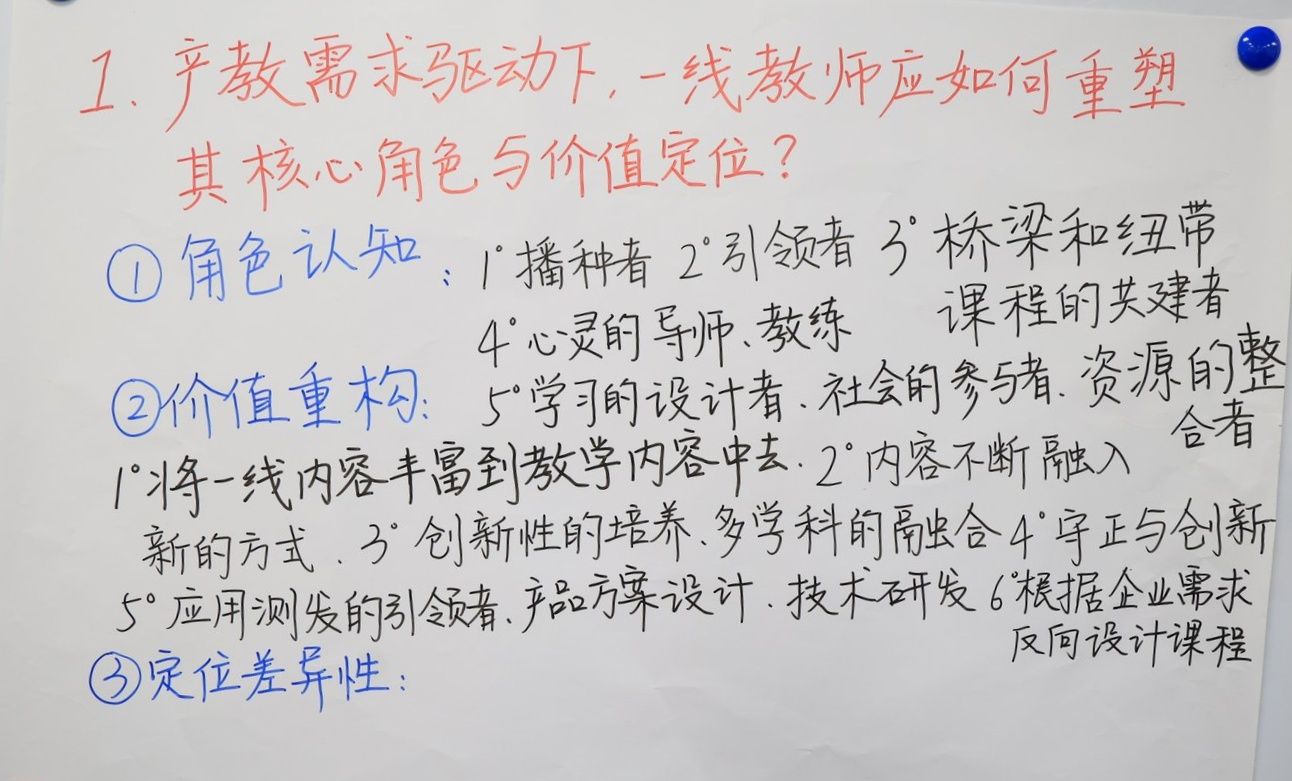 1. 产教需求驱动下,一线教师应如何重塑
其核心角色与价值定位?
① 角色认知: 1°播种者 2°引领者 3°桥梁和纽带
课程的共建者
4°心灵的导师、教练
②价值重构: 5°学习的设计者、社会的参与者、资源的整
合者
1°将一线内容丰富到教学内容中去. 2°内容不断融入
新的方式、3°创新性的培养、多学科的融合 4°守正与创新
5°应用测发的引领者、产品方案设计、技术研发 6°根据企业需求
反向设计课程
③定位差异性: